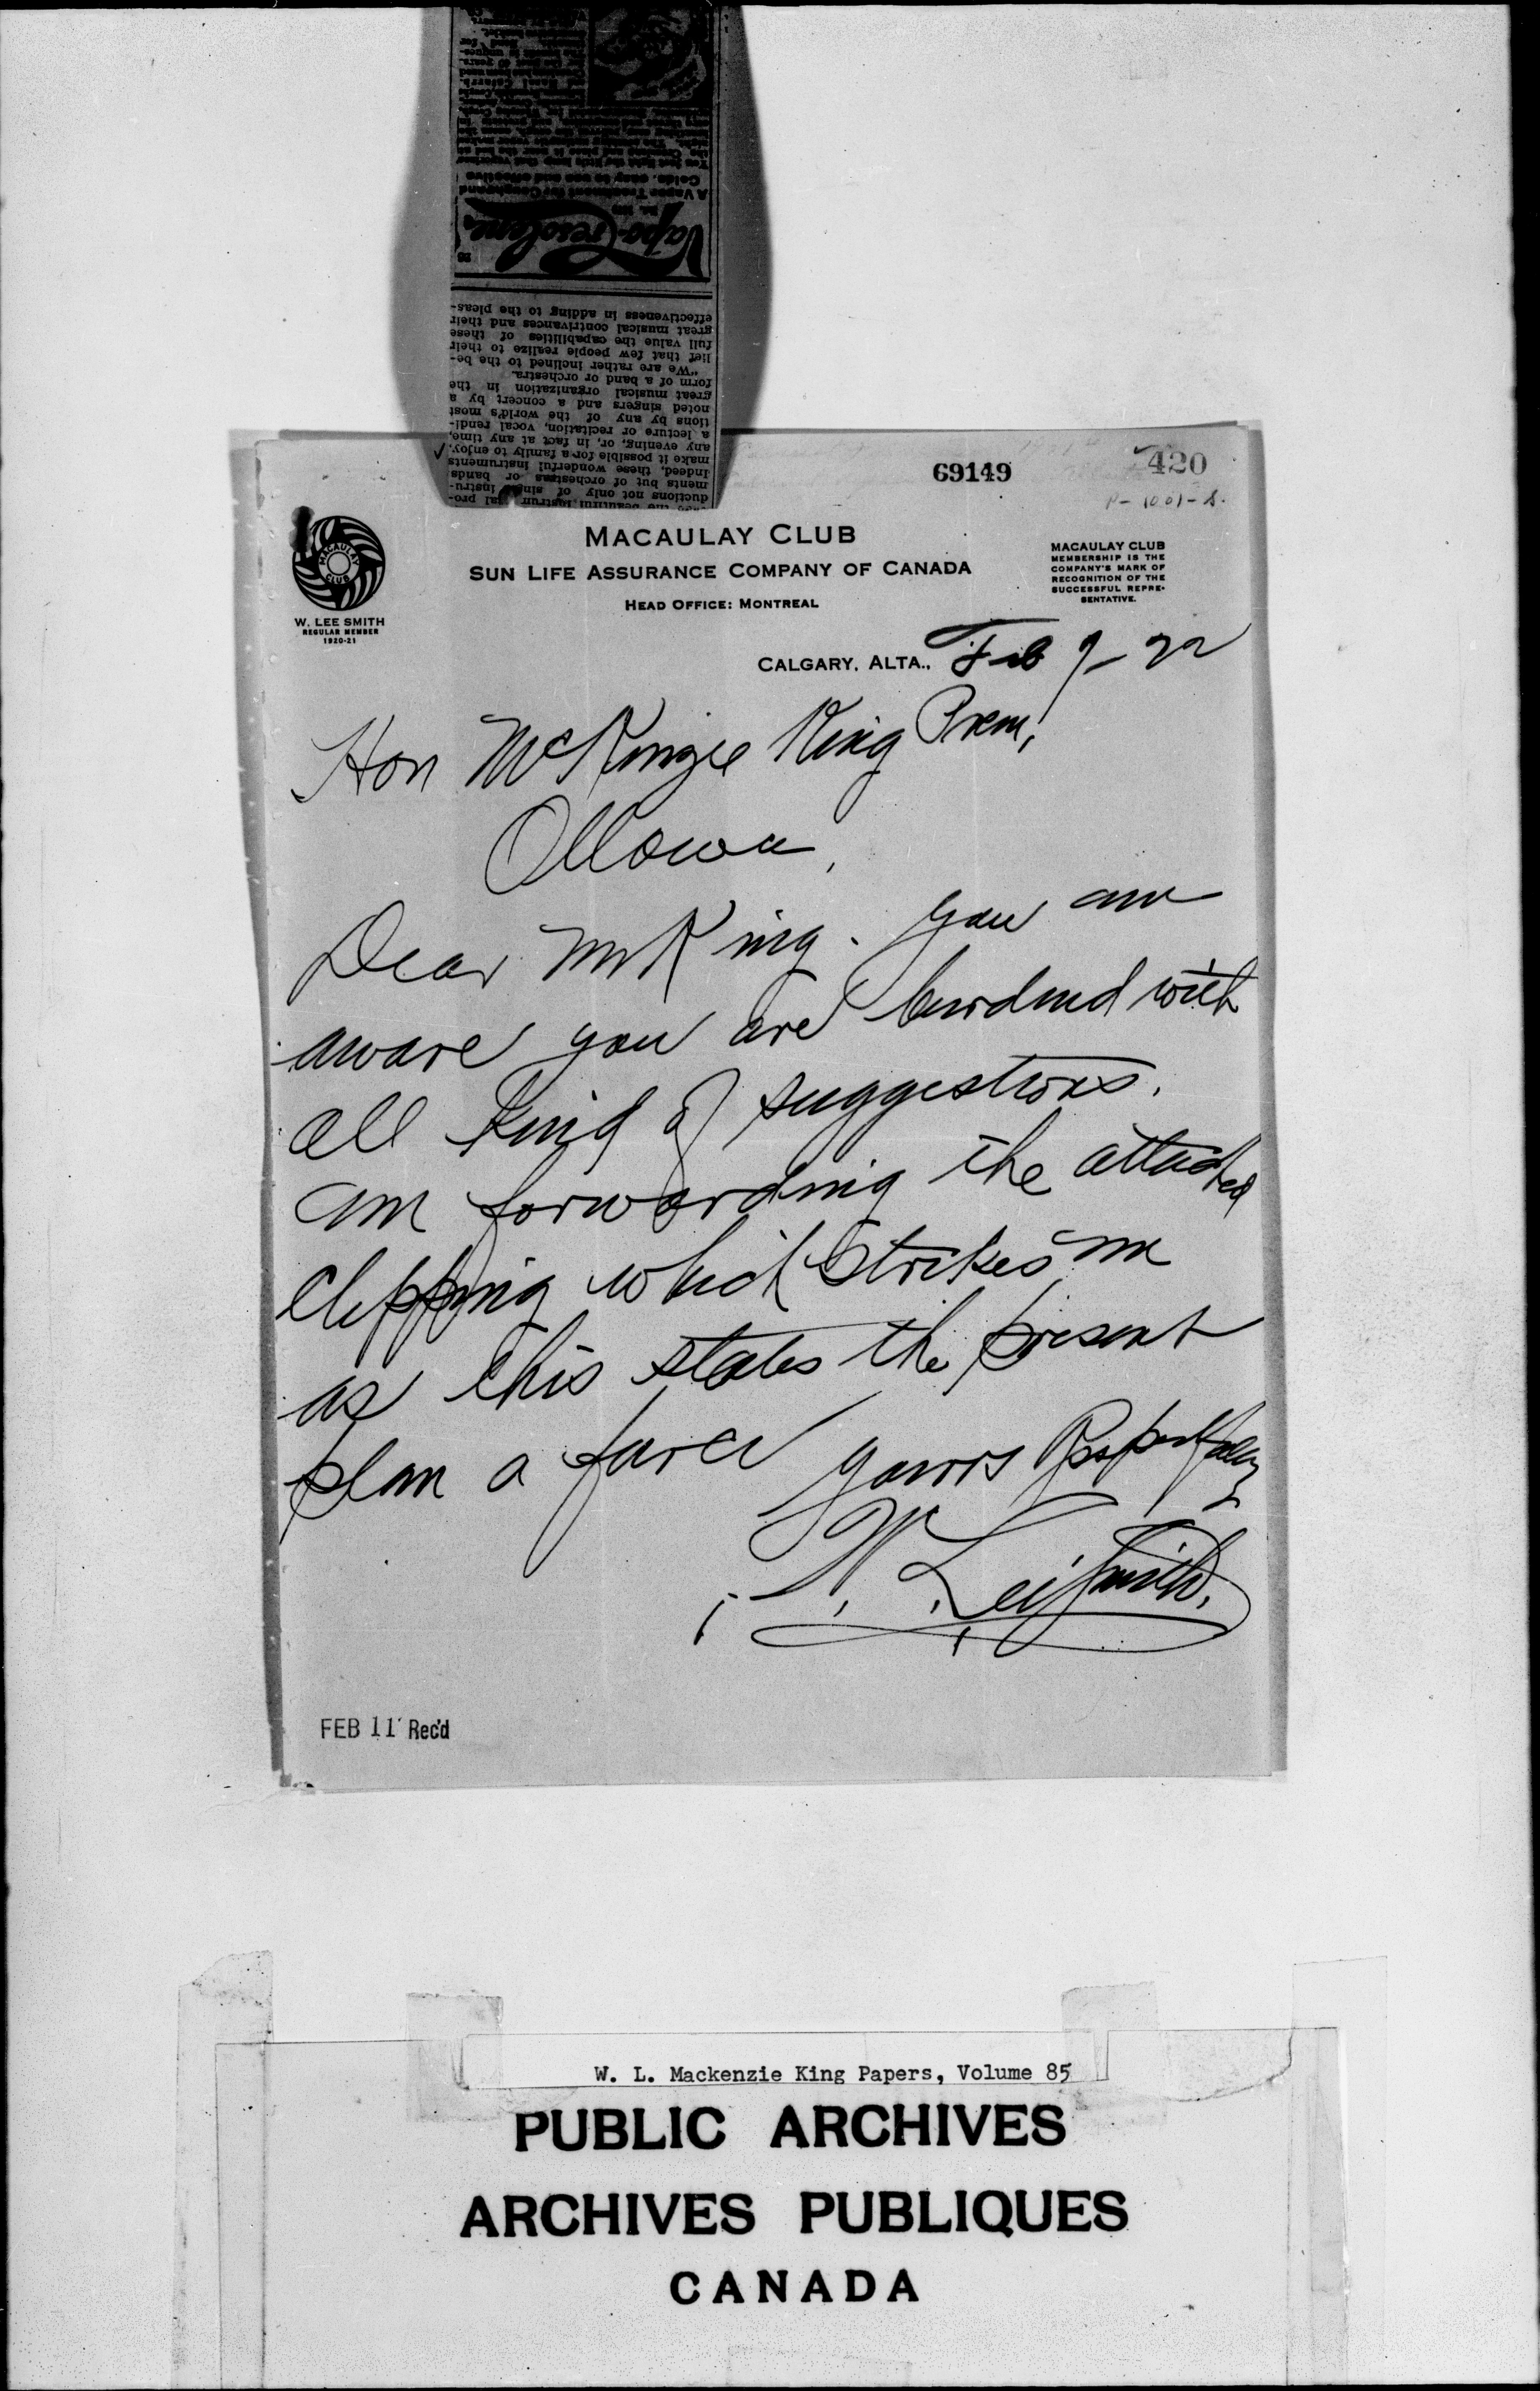 69149
420
P-1001-S.
MACAULAY CLUB
SUN LIFE ASSURANCE COMPANY OF CANADA
HEAD OFFICE: MONTREAL
MACAULAY CLUB
MEMBERSHIP IS THE
COMPANY'S MARK OF
RECOGNITION OF THE
SUCCESSFUL REPRE-
SENTATIVE.
MACAULAY
CLUB
W. LEE SMITH
REGULAR MEMBER
1920-21
CALGARY, ALTA., Feb 9-22
Hon McKinzie King Prem,
Ottowa,
Dear Mr King. you are
aware you are burdend with
all kind of suggestions.
am forwarding the attached
clipping which strikes me
as this states the present
plan a farce
yours Respectfully
W. Lee Smith.
FEB 11 Rec'd
ductions not only of single instru-
ments but of orchestras or bands
Indeed, these wonderful instruments
make it possible for a family to enjoy,
any evening, or, in fact at any time,
a lecture or recitation, vocal rendi-
tions by any of the world's most
noted singers and a concert by a
great musical organization in the
form of a band or orchestra.
"We are rather inclined to the be-
lief that few people realize to their
full value the capabilities of these
great musical contrivances and their
effectiveness in adding to the pleas-
26
Vapo-Cresolene
A Vapor Treatment for Coughs and
Colds, easy to use and effective
W. L. Mackenzie King Papers, Volume 85
PUBLIC ARCHIVES
ARCHIVES PUBLIQUES
CANADA